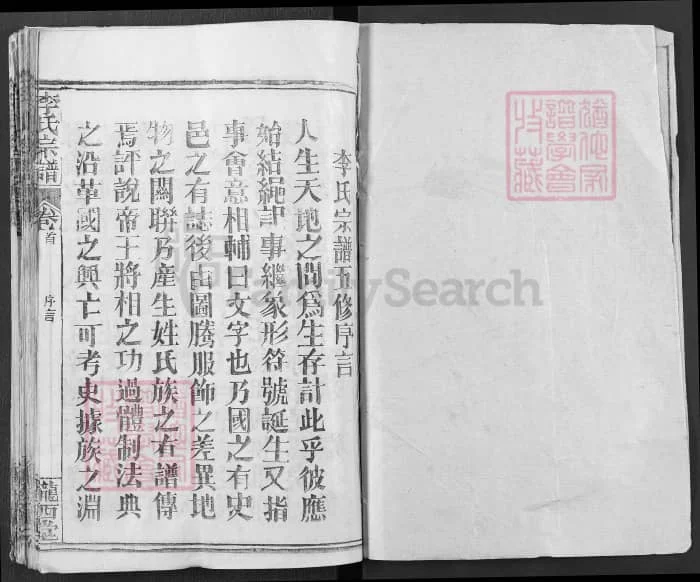 李氏宗譜五修序言
人生天地之間爲生存計此乎彼應
始結繩記事繼象形符號誕生又指
事會意相輔曰文字也乃國之有史
邑之有誌後由圖騰服飾之差異地
物之關聯乃產生姓氏族之有譜傳
焉評說帝王將相之功過體制法典
之沿革國之興亡可考史據族之淵
李氏宗譜
卷首
序言
隴西堂
譜學會
收藏
FamilySearch